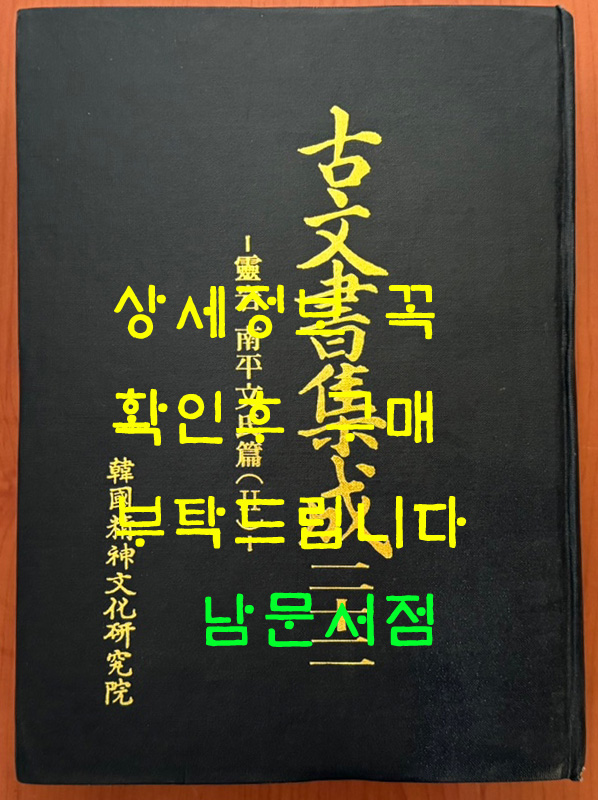 古文書集成 二十二
-靈岩 南平文氏篇(Ⅱ)-
韓國精神文化研究院
상세정보 꼭
확인후 구매
부탁드립니다
남문서점